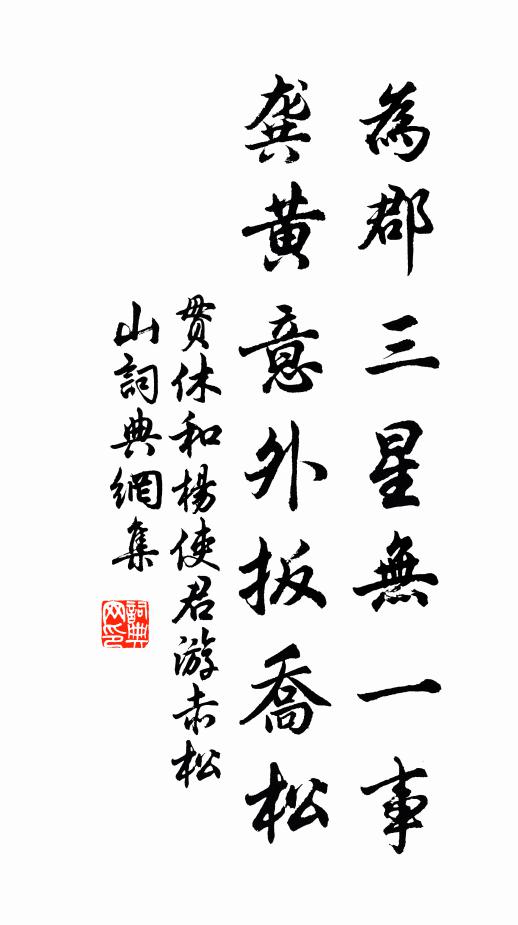 為郡三星無一事
龔黄意外扳喬松
贯休和楊使君游赤松
山詞典網集
詞典网印